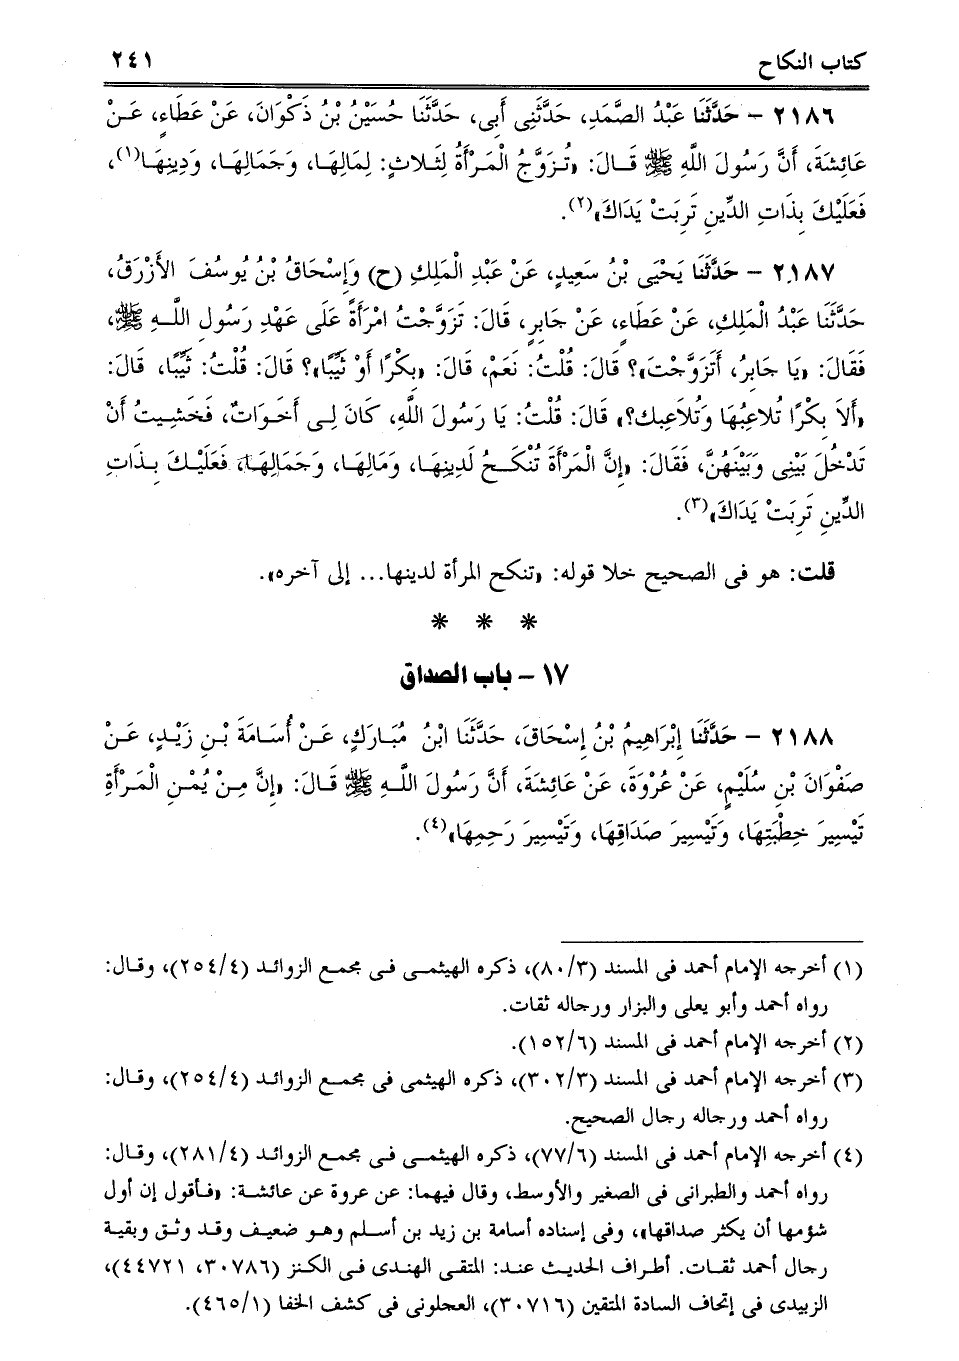 كتاب النكاح ٢٤١
٢١٨٦ – حَدَّثَنَا عَبْدُ الصَّمَدِ، حَدَّثَنِى أَبِى، حَدَّثَنَا حُسَيْنُ بْنُ ذَكْوَانَ، عَنْ عَطَاءٍ، عَنْ
عَائِشَةَ، أَنَّ رَسُولَ اللَّهِ ﷺ قَالَ: «تُزَوَّجُ الْمَرْأَةُ لِثَلاثٍ: لِمَالِهَا، وَجَمَالِهَا، وَدِينِهَا(١)،
فَعَلَيْكَ بِذَاتِ الدِّينِ تَرِبَتْ يَدَاكَ»(٢).
٢١٨٧ – حَدَّثَنَا يَحْيَى بْنُ سَعِيدٍ، عَنْ عَبْدِ الْمَلِكِ (ح) وَإِسْحَاقُ بْنُ يُوسُفَ الأَزْرَقُ،
حَدَّثَنَا عَبْدُ الْمَلِكِ، عَنْ عَطَاءٍ، عَنْ جَابِرٍ، قَالَ: تَزَوَّجْتُ امْرَأَةً عَلَى عَهْدِ رَسُولِ اللَّهِ ﷺ،
فَقَالَ: «يَا جَابِرُ، أَتَزَوَّجْتَ»؟ قَالَ: قُلْتُ: نَعَمْ، قَالَ: «بِكْرًا أَوْ ثَيِّبًا»؟ قَالَ: قُلْتُ: ثَيِّبًا، قَالَ:
«أَلاَ بِكْرًا تُلاعِبُهَا وَتُلاَعِبك؟» قَالَ: قُلْتُ: يَا رَسُولَ اللَّهِ، كَانَ لِى أَخَوَاتٌ، فَخَشِيتُ أَنْ
تَدْخُلَ بَيْنِى وَبَيْنَهُنَّ، فَقَالَ: «إِنَّ الْمَرْأَةَ تُنْكَحُ لَدِينِهَا، وَمَالِهَا، وَجَمَالِهَا، فَعَلَيْكَ بِذَاتِ
الدِّينِ تَرِبَتْ يَدَاكَ»(٣).
قلت: هو فى الصحيح خلا قوله: «تنكح المرأة لدينها... إلى آخره».
* * *
١٧ – باب الصداق
٢١٨٨ – حَدَّثَنَا إِبْرَاهِيمُ بْنُ إِسْحَاقَ، حَدَّثَنَا ابْنُ مُبَارَكٍ، عَنْ أُسَامَةَ بْنِ زَيْدٍ، عَنْ
صَفْوَانَ بْنِ سُلَيْمٍ، عَنْ عُرْوَةَ، عَنْ عَائِشَةَ، أَنَّ رَسُولَ اللَّهِ ﷺ قَالَ: «إِنَّ مِنْ يُمْنِ الْمَرْأَةِ
تَيْسِيرَ خِطْبَتِهَا، وَتَيْسِيرَ صَدَاقِهَا، وَتَيْسِيرَ رَحِمِهَا»(٤).
(١) أخرجه الإمام أحمد فى المسند (٨٠/٣)، ذكره الهيثمى فى مجمع الزوائد (٢٥٤/٤)، وقال:
رواه أحمد وأبو يعلى والبزار ورجاله ثقات.
(٢) أخرجه الإمام أحمد فى المسند (١٥٢/٦).
(٣) أخرجه الإمام أحمد فى المسند (٣٠٢/٣)، ذكره الهيثمى فى مجمع الزوائد (٢٥٤/٤)، وقال:
رواه أحمد ورجاله رجال الصحيح.
(٤) أخرجه الإمام أحمد فى المسند (٧٧/٦)، ذكره الهيثمى فى مجمع الزوائد (٢٨١/٤)، وقال:
رواه أحمد والطبرانى فى الصغير والأوسط، وقال فيهما: عن عروة عن عائشة: «فأقول إن أول
شؤمها أن يكثر صداقها»، وفى إسناده أسامة بن زيد بن أسلم وهو ضعيف وقد وثق وبقية
رجال أحمد ثقات. أطراف الحديث عند: المتقى الهندى فى الكنز (٣٠٧٨٦، ٤٤٧٢١)،
الزبيدى فى إتحاف السادة المتقين (٣٠٧١٦)، العجلونى فى كشف الخفا (٤٦٥/١).